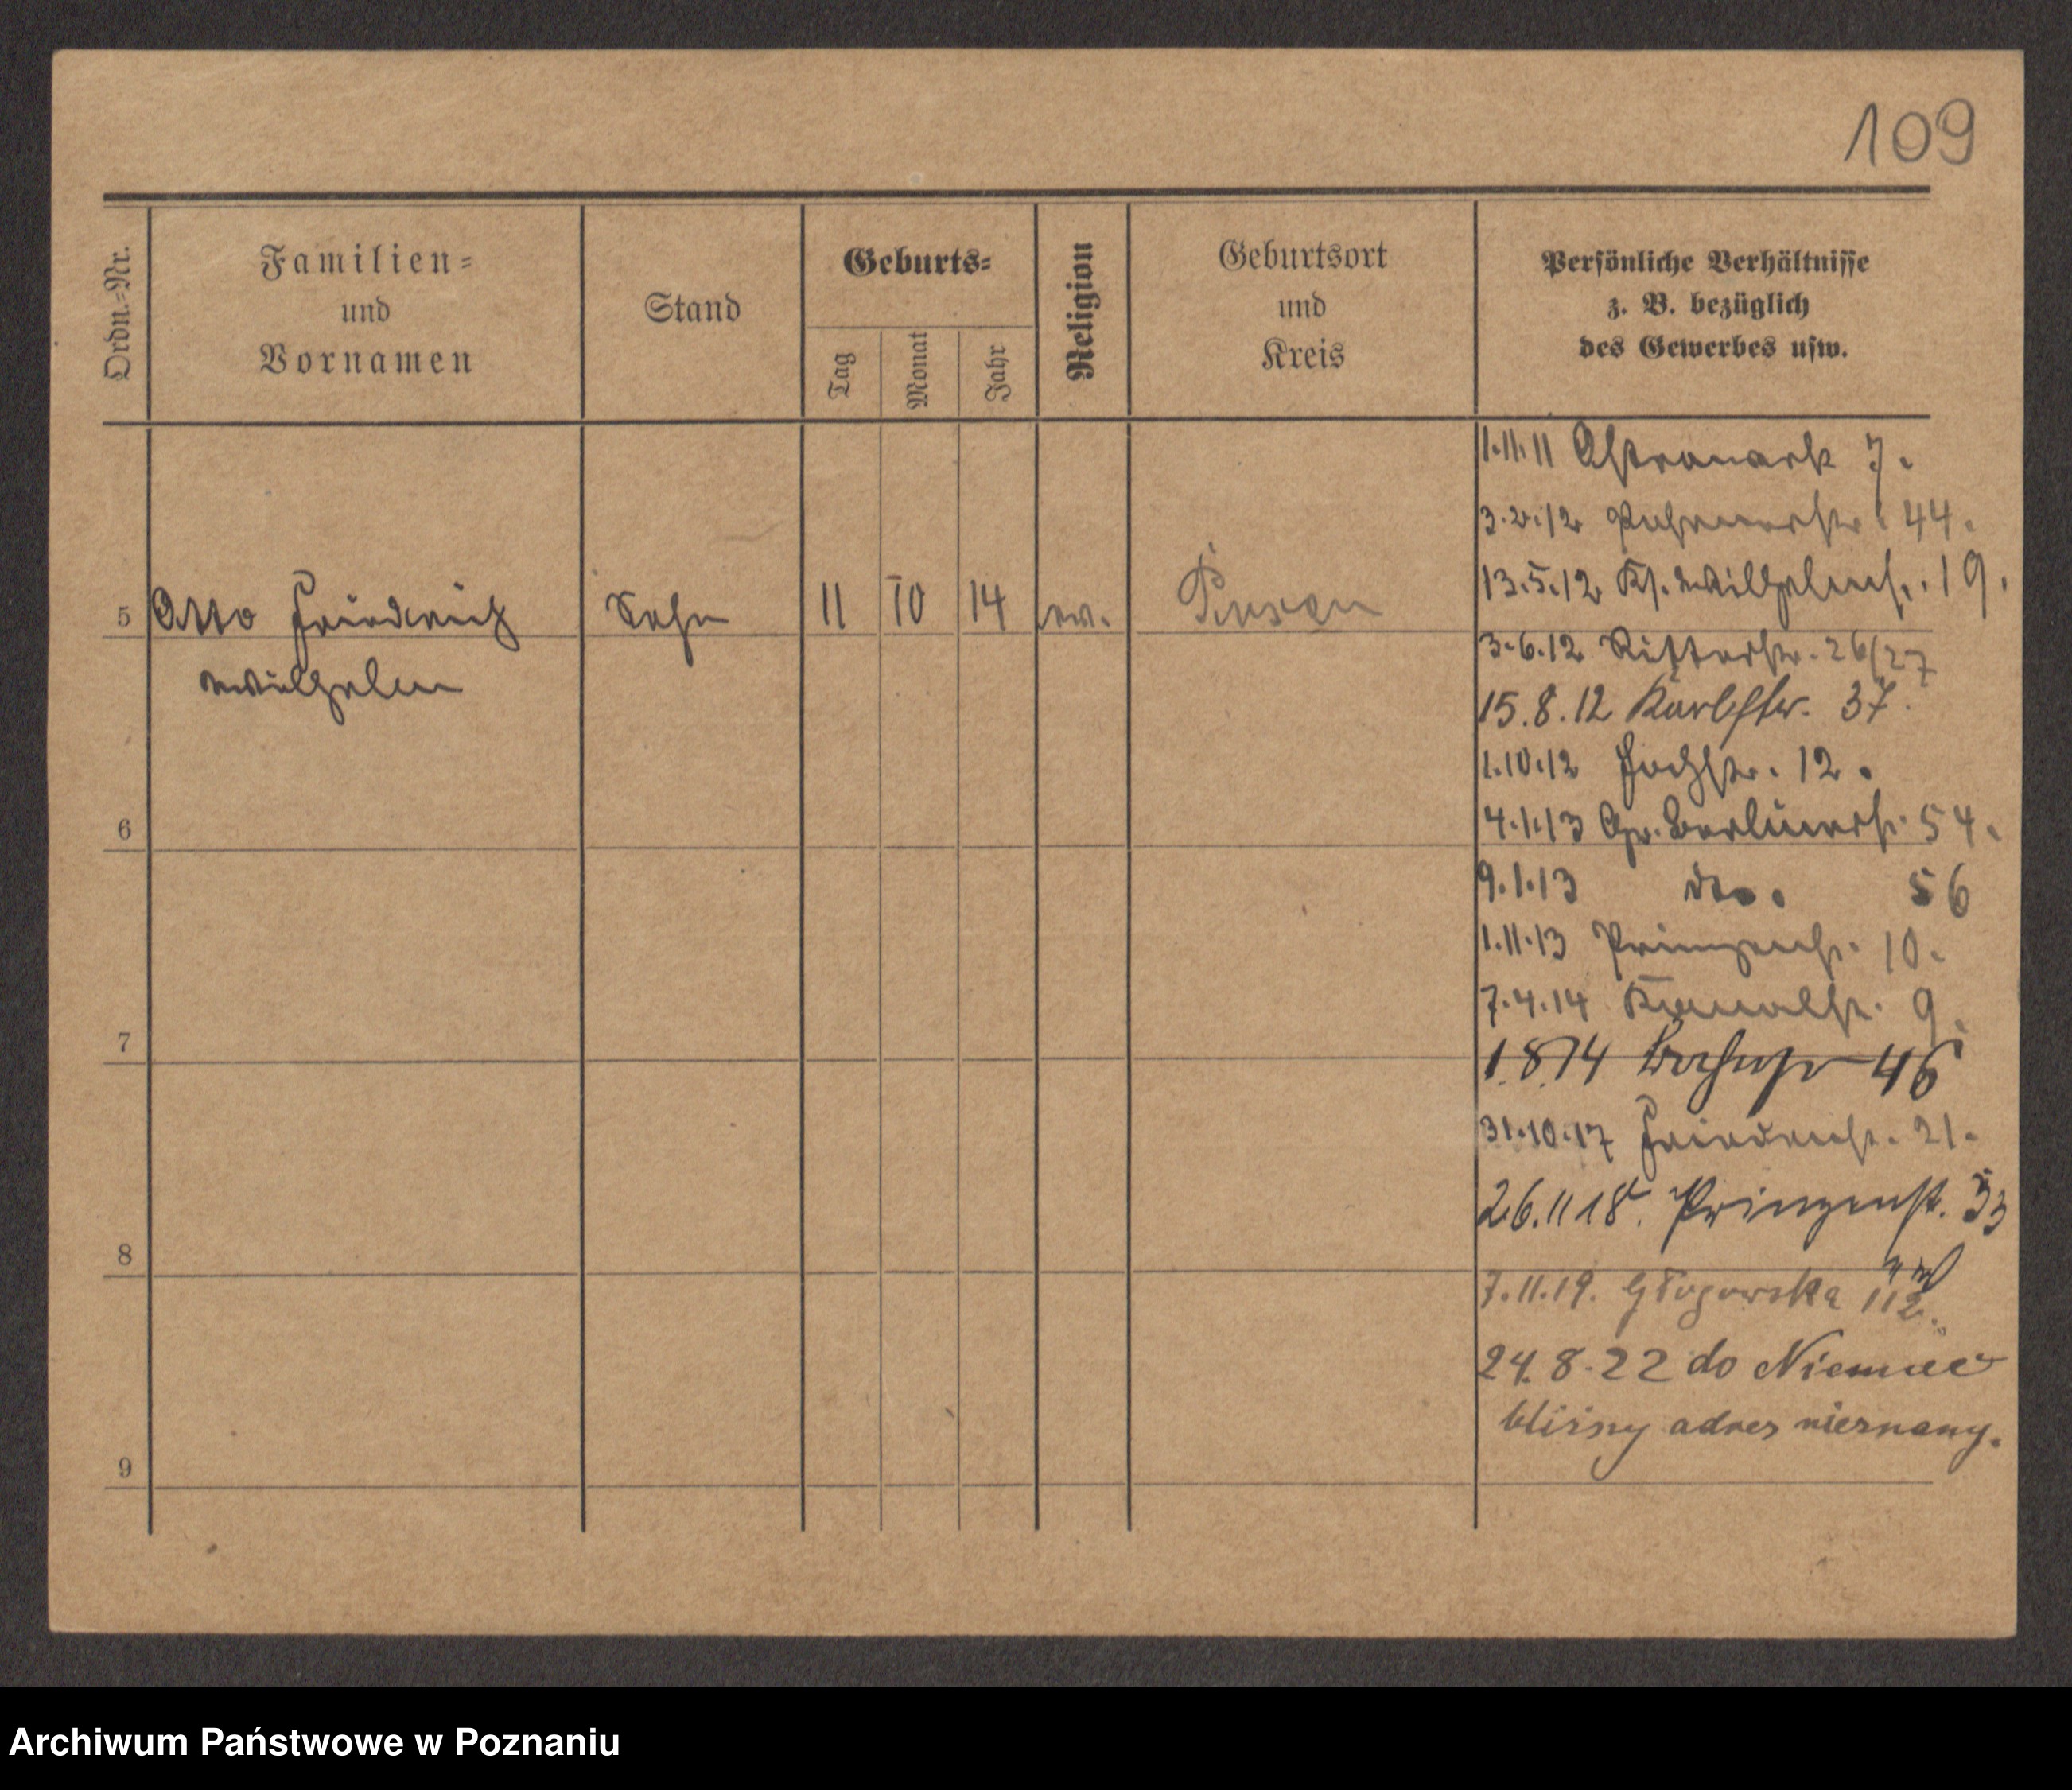 109
Ordn.=Nr.
Familien=
und
Vornamen
Stand
Geburts=
Tag
Monat
Jahr
Religion
Geburtsort
und
Kreis
Persönliche Verhältnisse
z. B. bezüglich
des Gewerbes usw.
1.11.11 7.
3.2.12 44.
13.5.12 Kl. Wilhelmst. 19.
5 Otto Friedrich Sohn 11 10 14 ev. Posen
Wilhelm
3.6.12 Ritterstr. 26/27
15.8.12 Karlstr. 37.
1.10.12 Hochstr. 12.
6
4.1.13 Gr. Berlinerst. 54.
9.1.13 dto. 56
1.11.13 Prinzenst. 10.
7.4.14 Kanalst. 9.
7
1.8.14 46
31.10.17 21.
26.11 18. Prinzenst. 53
8
7.11.19. Głogowska 112.
24.8.22 do Niemiec
bliższy adres nieznany.
9
Archiwum Państwowe w Poznaniu